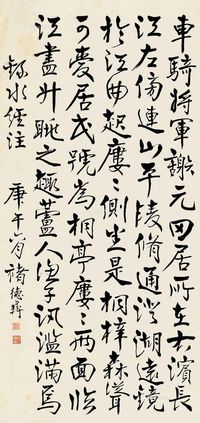 車騎將軍謝元田居所在右濱長
江左傍連山平陵脩通澄湖遠鏡
於江曲起廔〻側是桐梓森聳
可愛居民號為桐亭廔〻兩面臨
江盡升眺之趣蘆人漁子汎濫滿焉
水經注
庚午六月 褚德彝